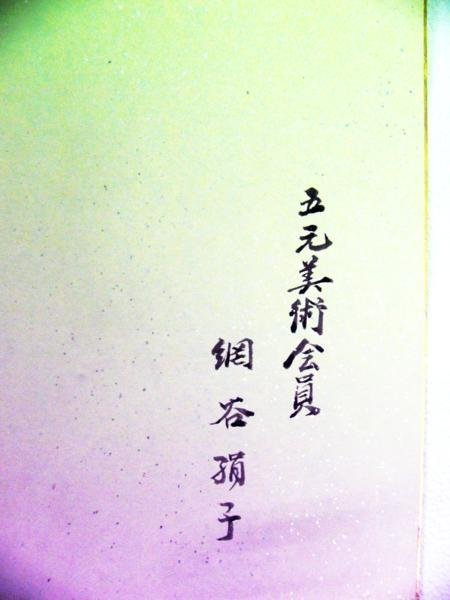 五元美術会員
網谷絹子